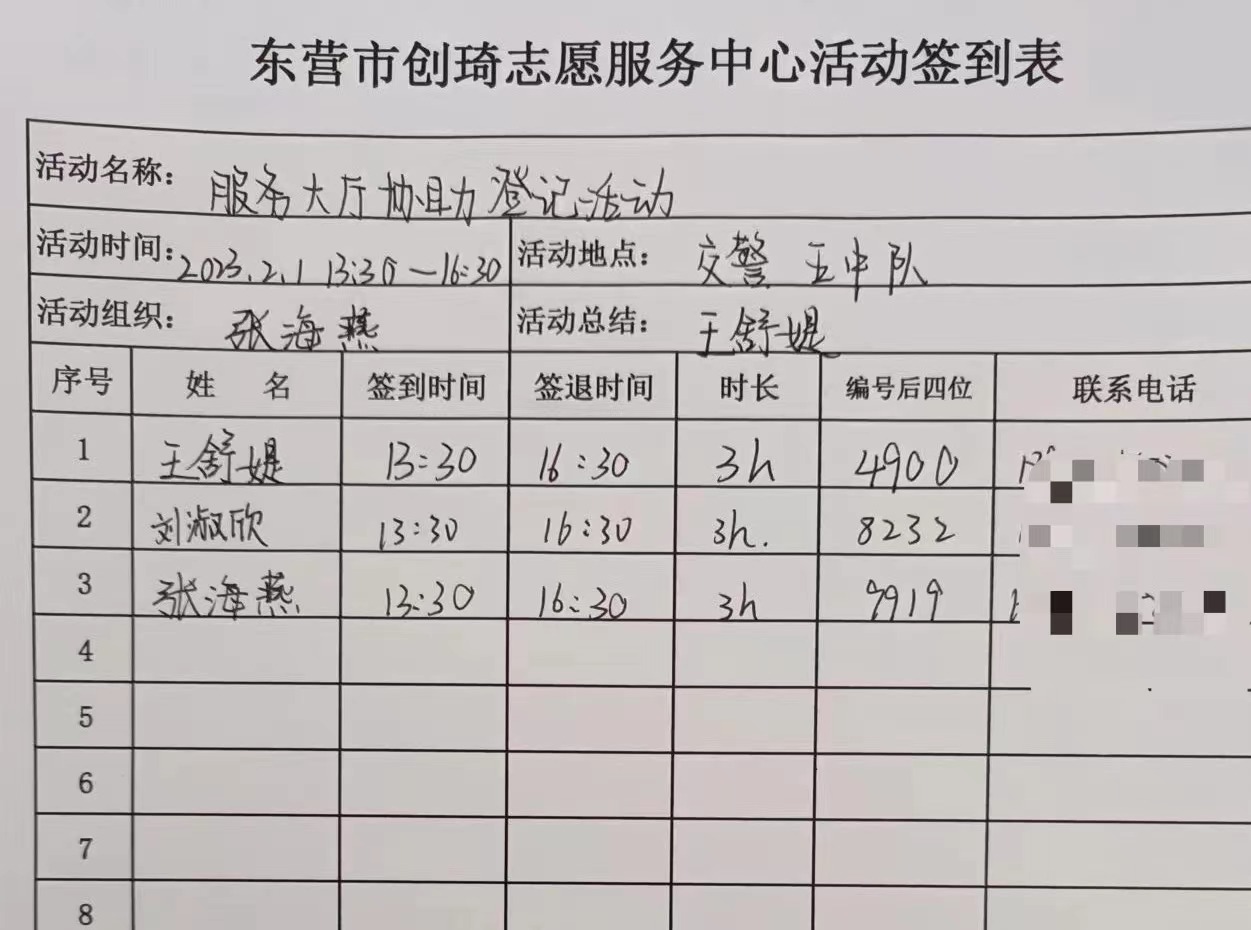 东营市创琦志愿服务中心活动签到表
活动名称： 服务大厅协助登记活动
活动时间：2023.2.1 13:30—16:30 活动地点： 交警 五中队
活动组织： 张海燕 活动总结： 王舒媞
序号 姓 名 签到时间 签退时间 时长 编号后四位 联系电话
1 王舒媞 13:30 16:30 3h 4900
2 刘淑欣 13:30 16:30 3h. 8232
3 张海燕 13:30 16:30 3h 9919
4
5
6
7
8